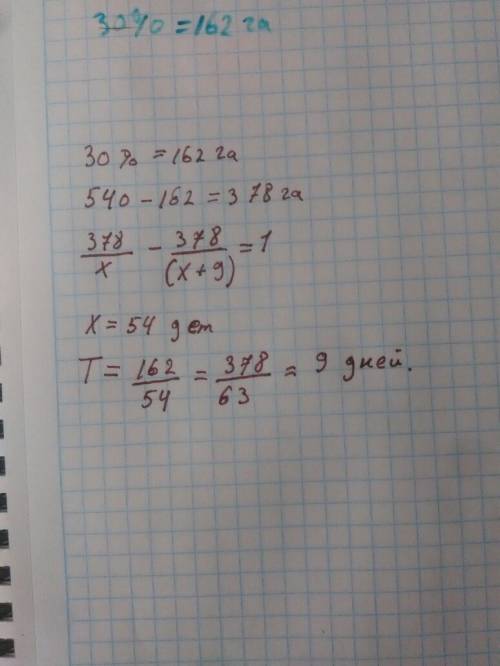 30% = 162 га
30% = 162 га
540 - 162 = 378 га
378/x - 378/(x+9) = 1
x = 54 дет
T = 162/54 = 378/63 = 9 дней.